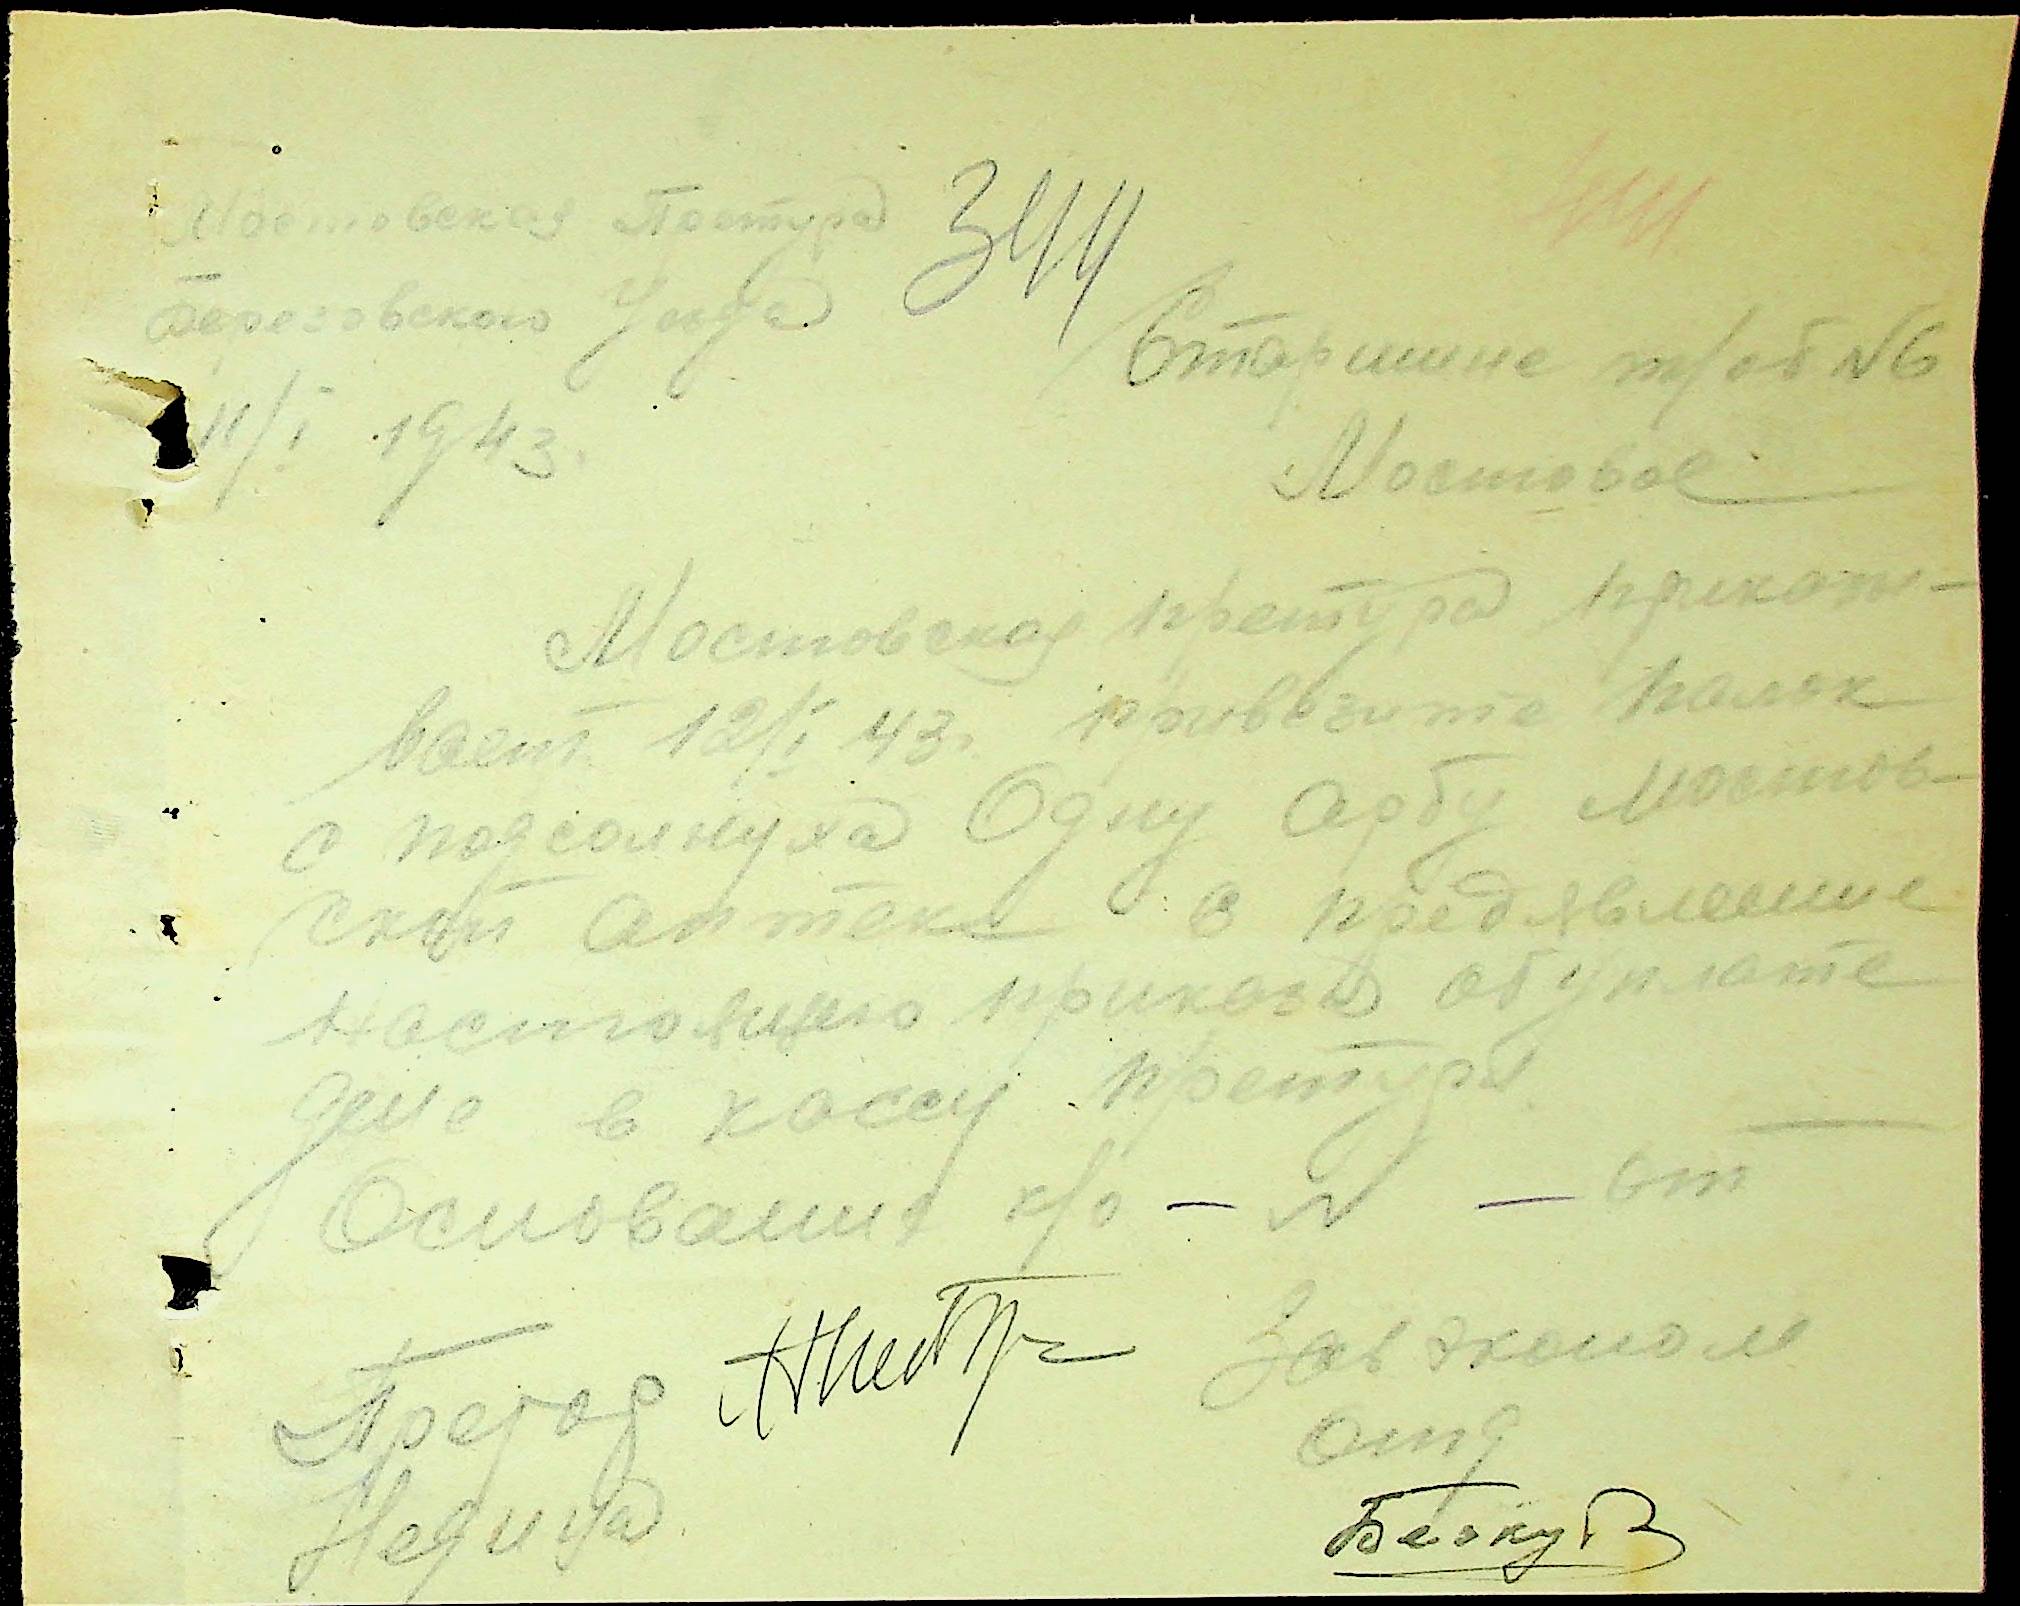 Мостовская Претура 344
Березовского Уезда
11/I 1943.
Старшине т/об №6
Мостовое
Мостовская претура приказы-
вает 12/I 43. привезите палок
с подсолнуха Одну арбу Мостов-
ской аптеке в предявление
настоящего приказа об уплате
дене в кассу претуры
Основание к/о — № — от
Претор
Завэконом
отд